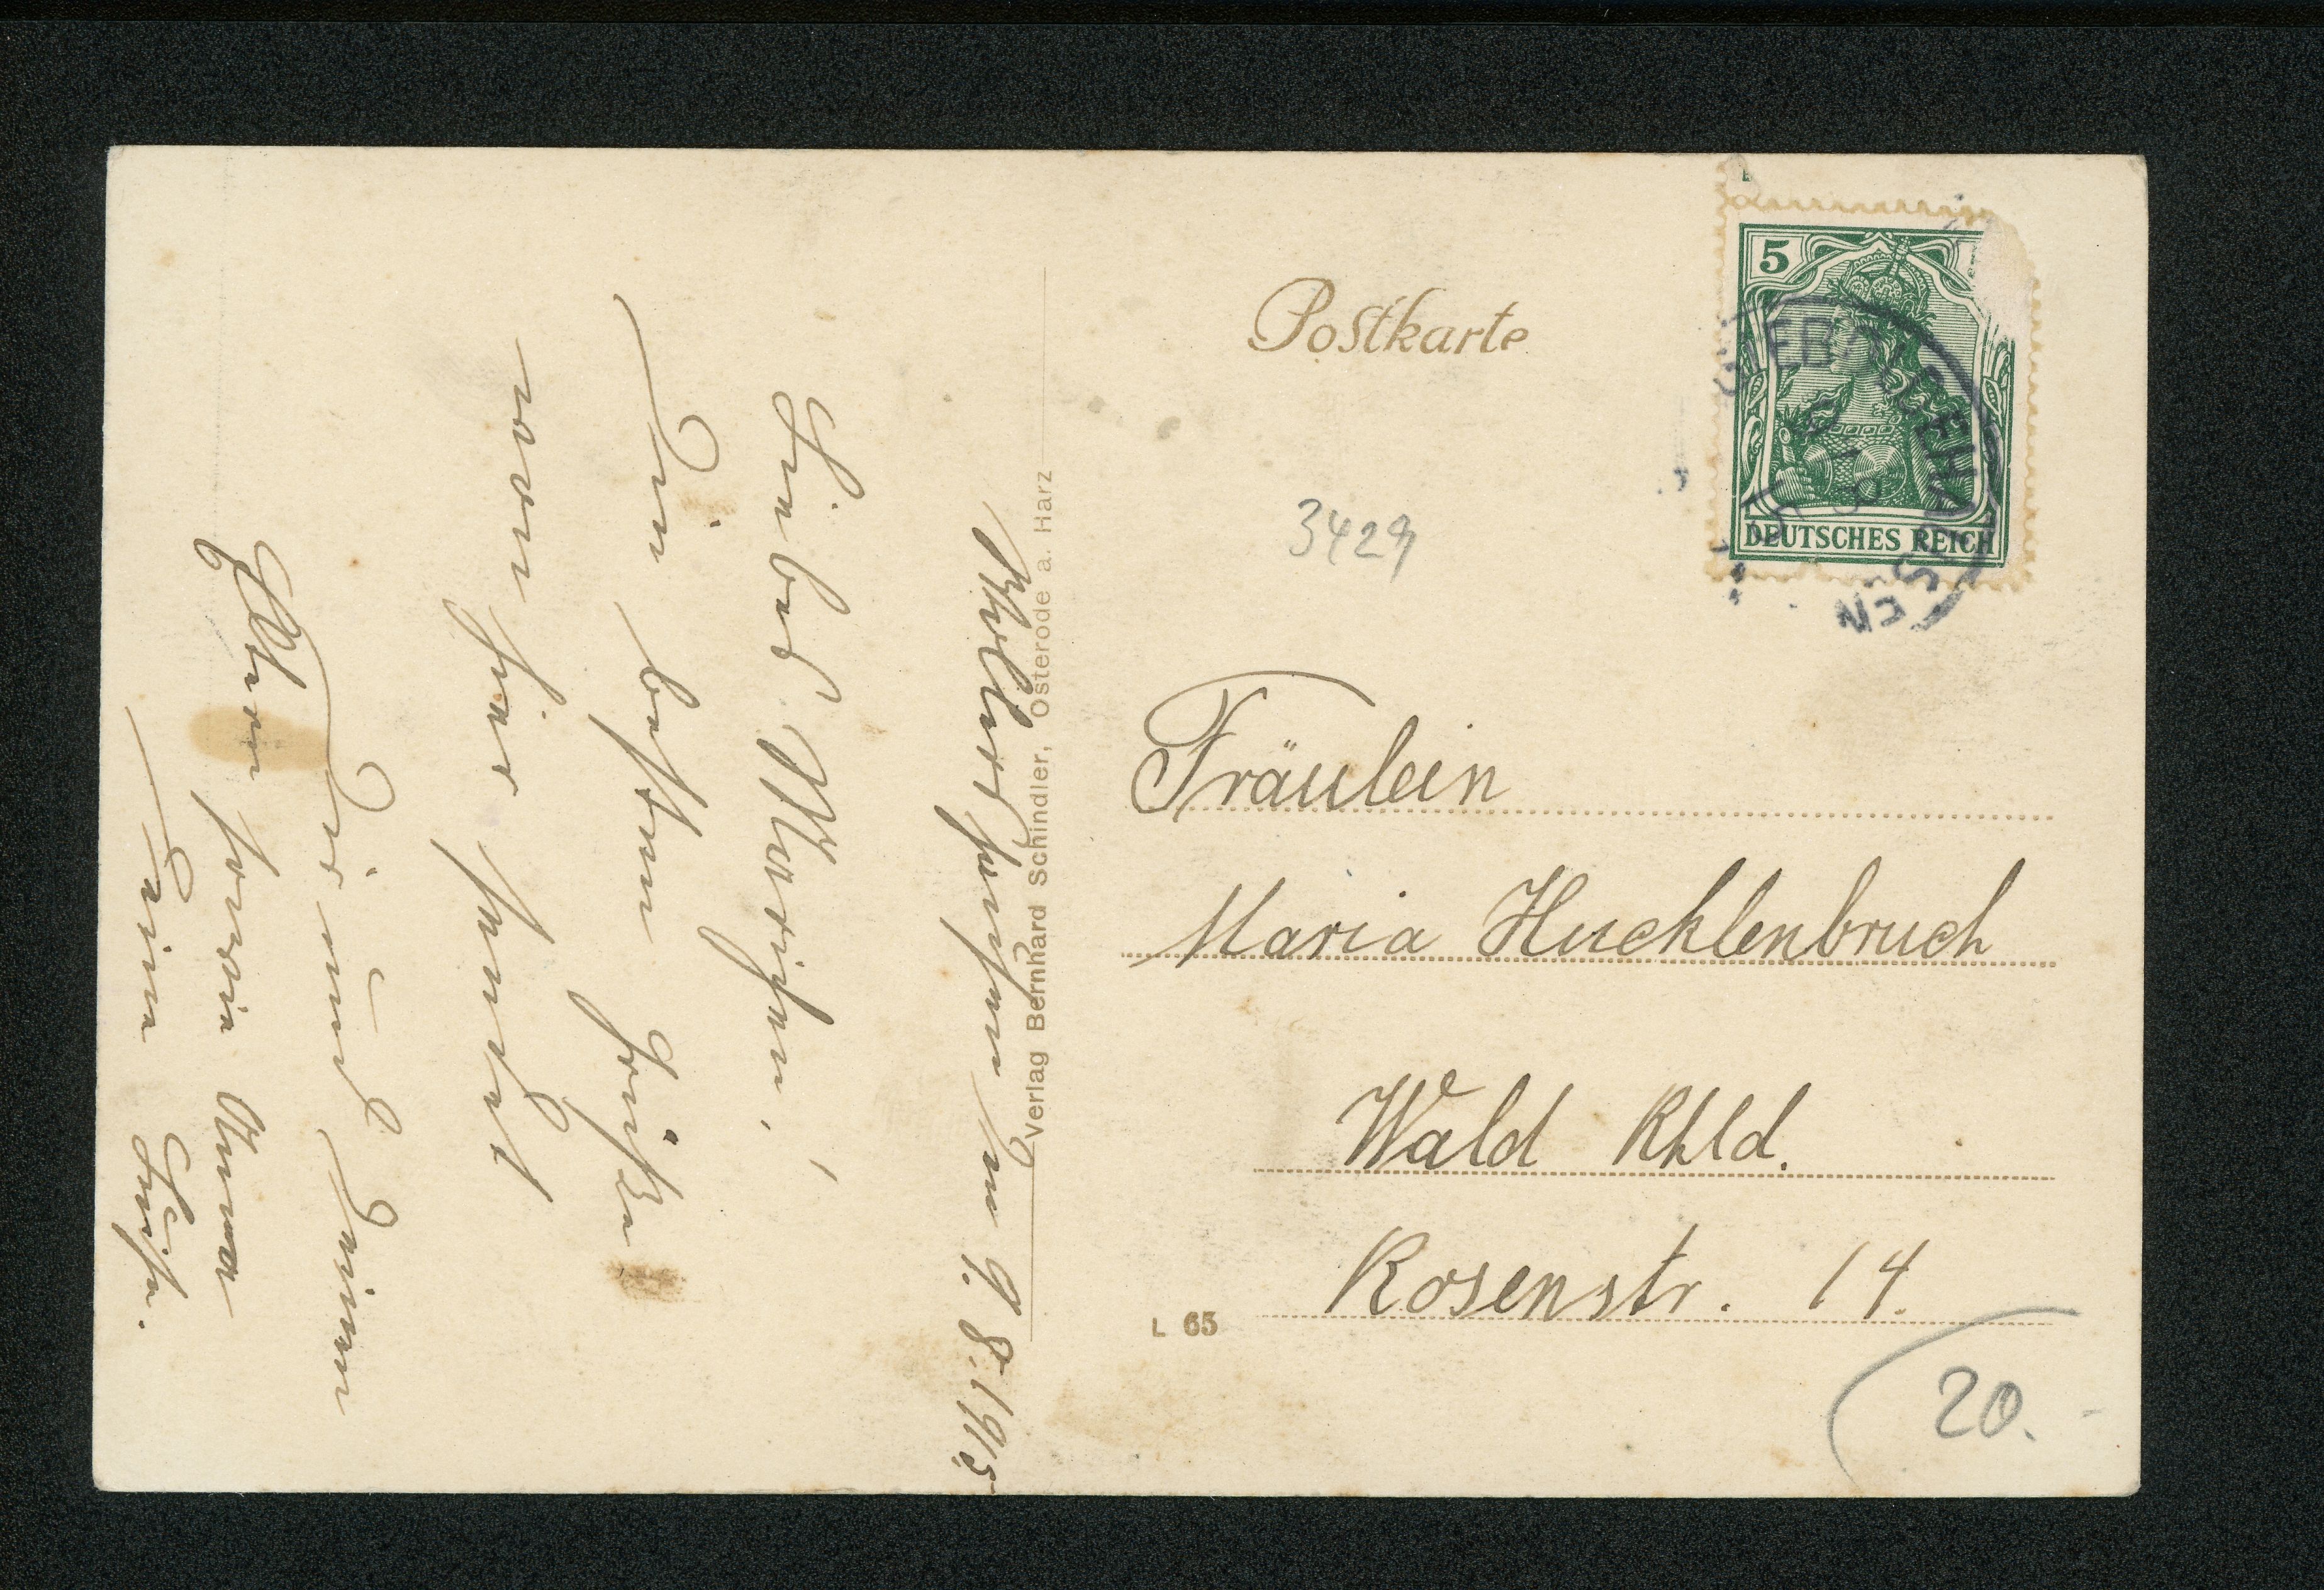 Postkarte
5
DEUTSCHES REICH
3429
Fräulein
Maria Hucklenbruch
Wald Rhld.
Rosenstr. 14.
L 65
20.
Verlag Bernhard Schindler, Osterode a. Harz
Wollershausen den 9.8.1915
Liebes Mariechen!
Die besten Grüße
von hier sendet
Dir und Deinen
Eltern sowie Anna
Deine Luise.